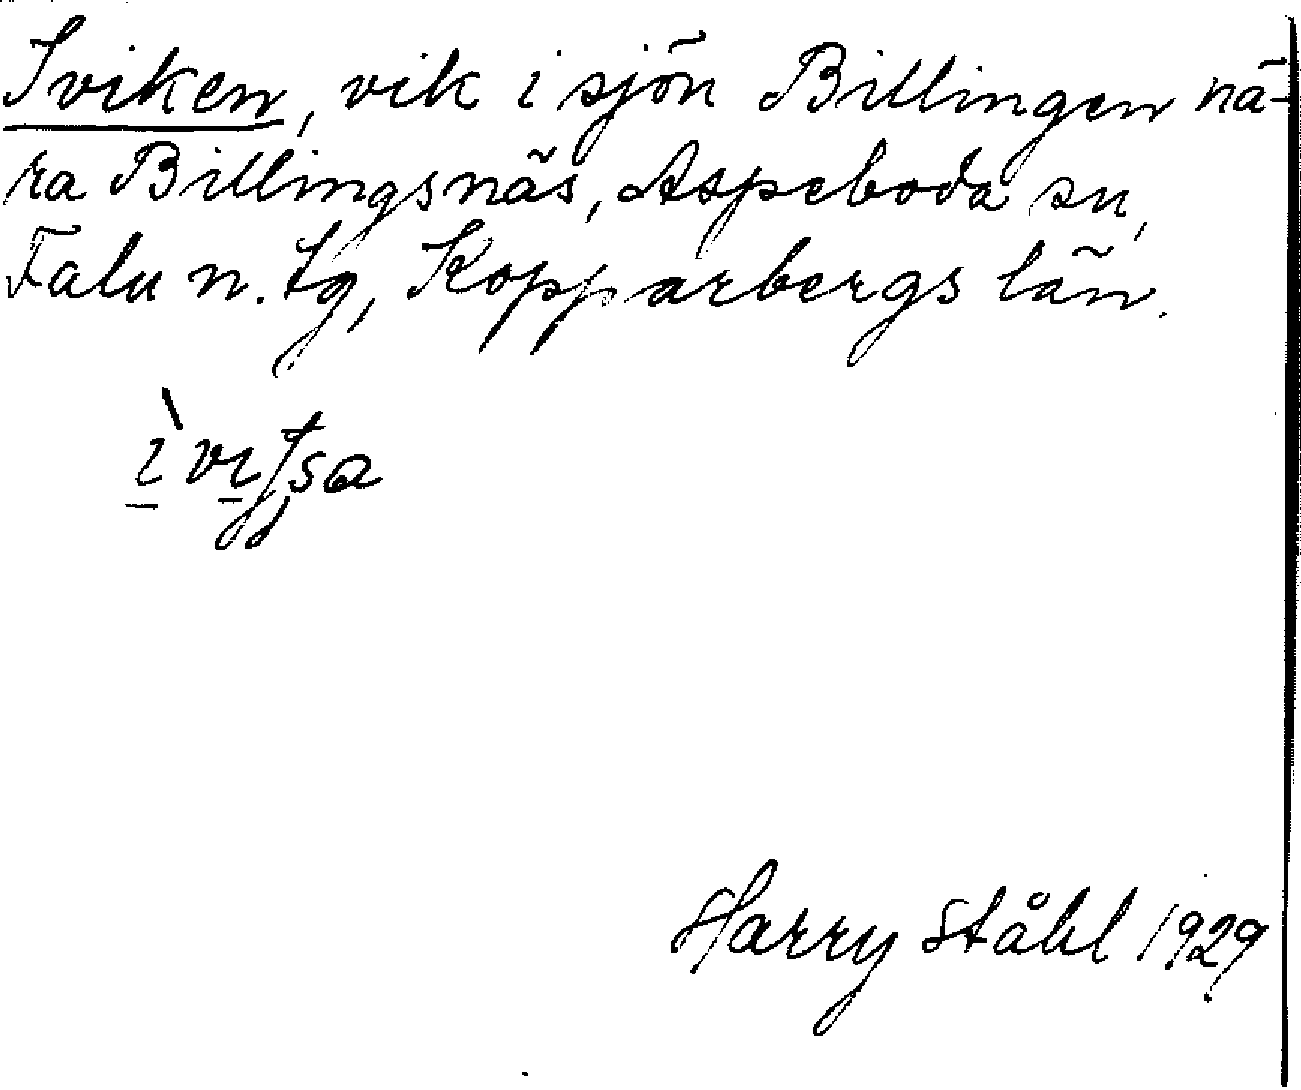 Iviken, vik i sjön Billingen nä-
ra Billingsnäs, Aspeboda sn,
Falu n. tg, Kopparbergs län.
Harry Ståhl 1929